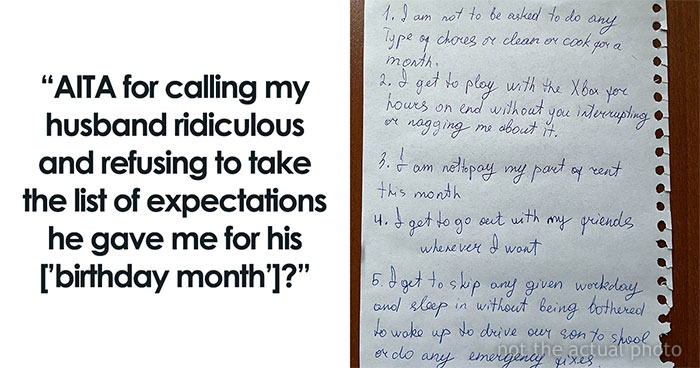 “AITA for calling my
husband ridiculous
and refusing to take
the list of expectations
he gave me for his
[’birthday month’]?”
1. I am not to be asked to do any
Type of chores or clean or cook for a
month.
2. I get to play with the Xbox for
hours on end without you interrupting
or nagging me about it.
3. I am not to pay my part of rent
this month
4. I get to go out with my friends
whenever I want
5. I get to skip any given workday
and sleep in without being bothered
to wake up to drive our son to shool
or do any emergency fixes.
not the actual photo